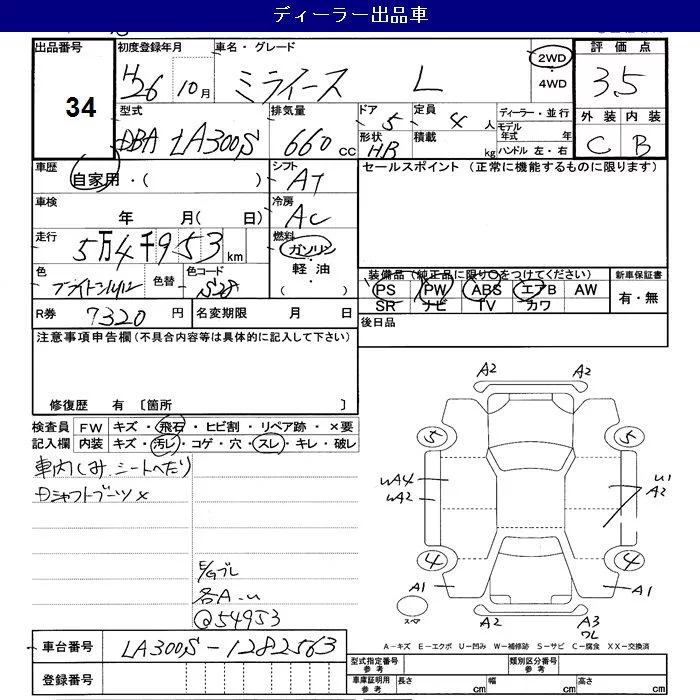 ディーラー出品車
出品番号 初度登録年月 車名・グレード 評価点
34
H26 10月 ミライース L 2WD 4WD 3.5
外装 内装
C B
型式 排気量 ドア 定員 ディーラー・並行
DBA LA300S 660 CC 5 4 人 モデル年式 年
形状 積載 kg ハンドル 左・右
HB
車歴 シフト セールスポイント (正常に機能するものに限ります)
自家用・( ) AT
車検 冷房
年 月( 日) AC
走行 燃料
5万4千953km ガソリン・軽油・( )
色 色替 色コード 装備品(純正品に限り○をつけてください) 新車保証書
ブライトシルバー S28 PS PW ABS エアB AW 有・無
SR ナビ TV カワ
R券 7320 円 名変期限 月 日 後日品
注意事項申告欄(不具合内容等は具体的に記入して下さい)
修復歴 有 〔箇所 〕
検査員 FW キズ・飛石・ヒビ割・リペア跡・×要
記入欄 内装 キズ・汚レ・コゲ・穴・スレ・キレ・破レ
車内しみ、シートへたり
Dシャフトブーツ×
E/Gブレ
各A-u
@54953
A2 A2
5 5
wA4
wA2
u1
A2
4 4
A1 A1
スペア
A2 A3
ワレ
A-キズ E-エクボ U-凹み W-補修跡 S-サビ C-腐食 XX-交換済
車台番号 LA300S-1282563
登録番号
型式指定番号 参考 類別区分番号 参考
車庫証明用 参考 長さ cm 幅 cm 高さ cm